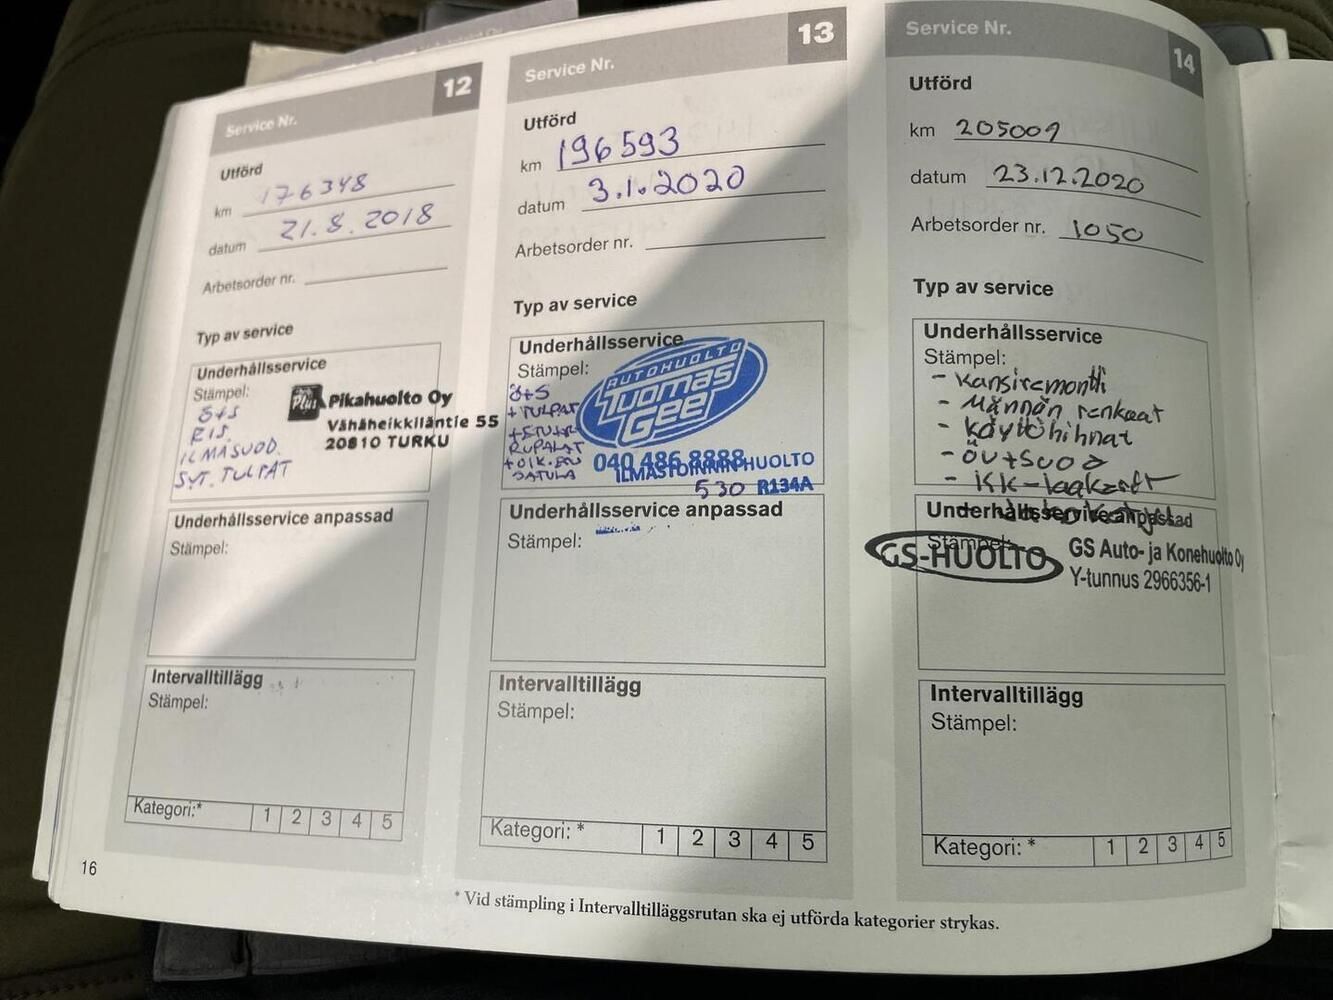 Service Nr. 12
Utförd
km 176348
datum 21.8.2018
Arbetsorder nr.
Typ av service
Underhållsservice
Stämpel:
Ö+S
RIS.
ILMASUOD.
SYT. TULPAT
Plus Pikahuolto Oy
Vähäheikkiläntie 55
20810 TURKU
Underhållsservice anpassad
Stämpel:
Intervalltillägg
Stämpel:
Kategori:* 1 2 3 4 5
16
Service Nr. 13
Utförd
km 196593
datum 3.1.2020
Arbetsorder nr.
Typ av service
Underhållsservice
Stämpel:
Ö+S
+TULPAT
+ETU
RUPALAT
SATULA
AUTOHUOLTO
Tuomas
Geer
040 486 8888
ILMASTOINNINHUOLTO
530 R134A
Underhållsservice anpassad
Stämpel:
Intervalltillägg
Stämpel:
Kategori: * 1 2 3 4 5
Service Nr. 14
Utförd
km 205009
datum 23.12.2020
Arbetsorder nr. 1050
Typ av service
Underhållsservice
Stämpel:
- Kansiremontti
- Männän renkaat
- Käyttöhihnat
- ÖV+Suod
- KK-
Underhållsservice anpassad
Stämpel:
GS-HUOLTO
GS Auto- ja Konehuolto Oy
Y-tunnus 2966356-1
Intervalltillägg
Stämpel:
Kategori: * 1 2 3 4 5
* Vid stämpling i Intervalltilläggsrutan ska ej utförda kategorier strykas.